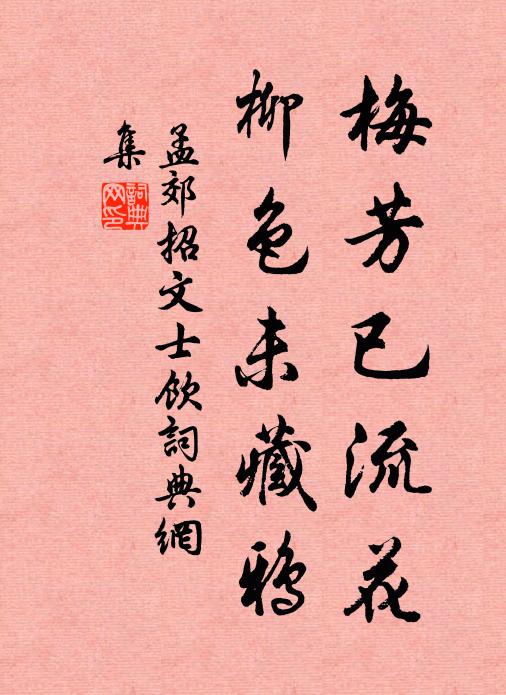 梅芳已流花
柳色未藏鴉
孟郊招文士飲詞典網
集
詞典网印